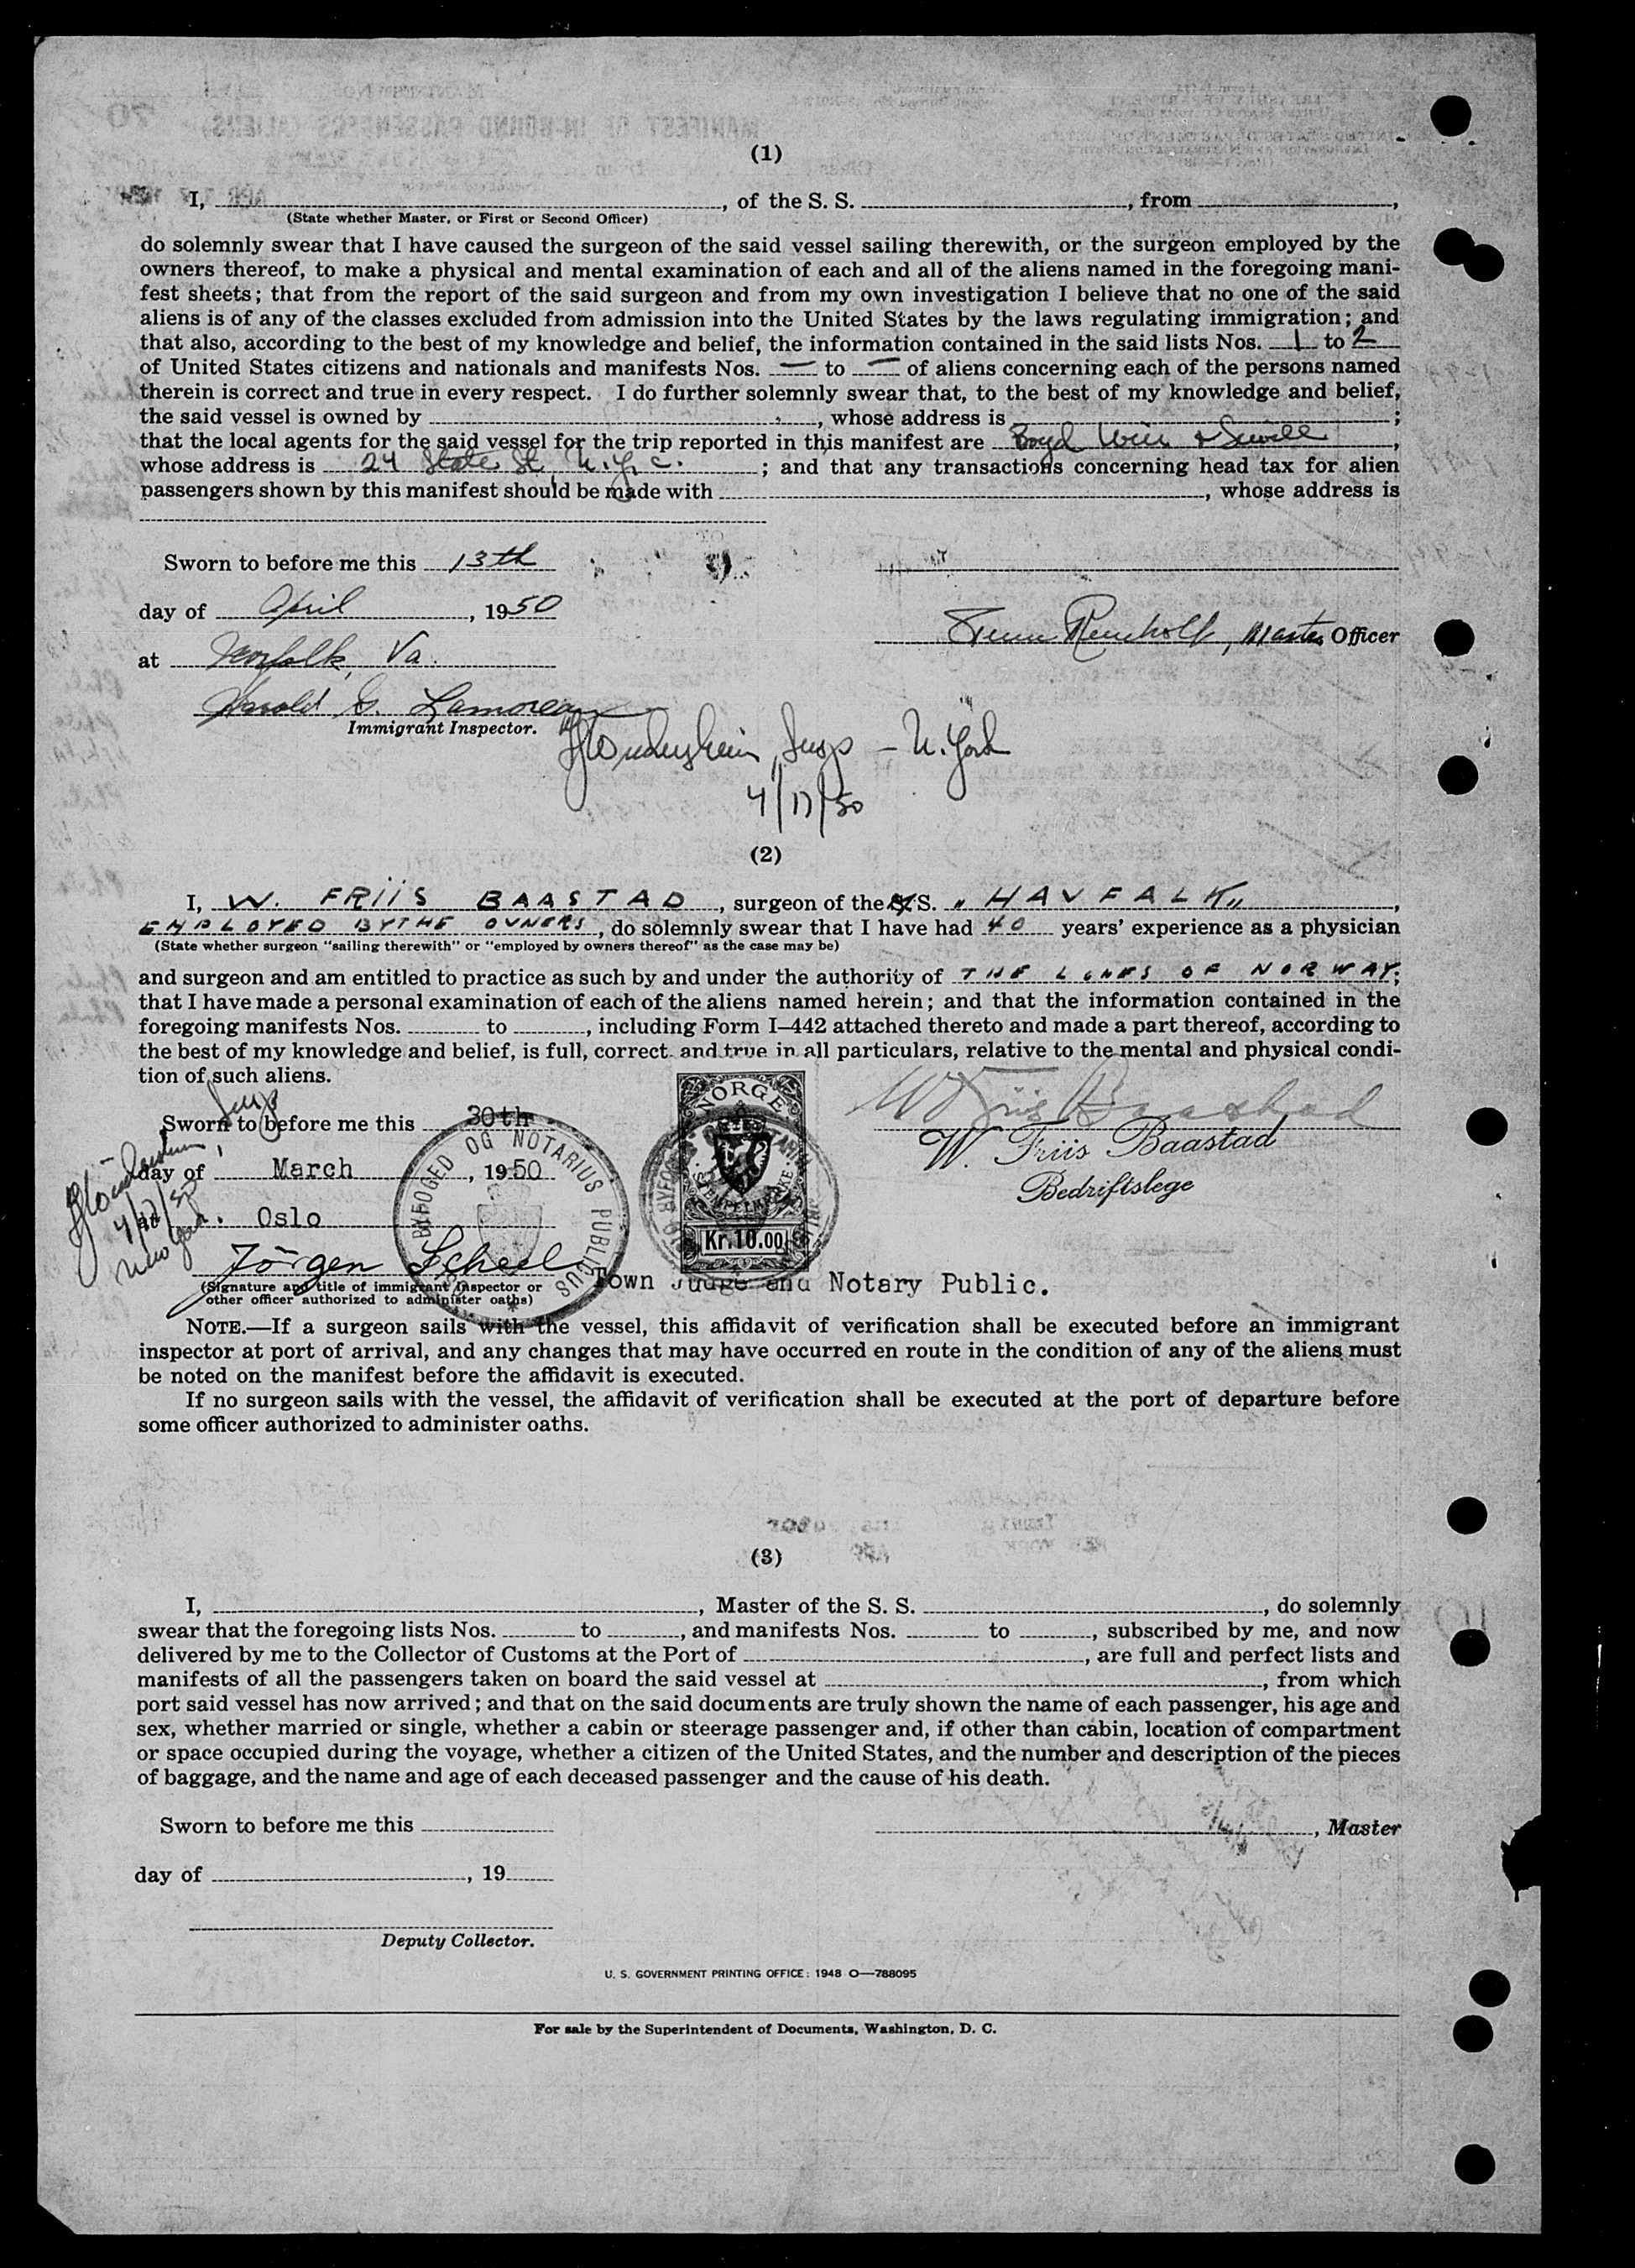 (1)
I, , of the S. S. , from ,
(State whether Master, or First or Second Officer)
do solemnly swear that I have caused the surgeon of the said vessel sailing therewith, or the surgeon employed by the
owners thereof, to make a physical and mental examination of each and all of the aliens named in the foregoing mani-
fest sheets; that from the report of the said surgeon and from my own investigation I believe that no one of the said
aliens is of any of the classes excluded from admission into the United States by the laws regulating immigration; and
that also, according to the best of my knowledge and belief, the information contained in the said lists Nos. 1 to 2
of United States citizens and nationals and manifests Nos. — to — of aliens concerning each of the persons named
therein is correct and true in every respect. I do further solemnly swear that, to the best of my knowledge and belief,
the said vessel is owned by , whose address is ;
that the local agents for the said vessel for the trip reported in this manifest are Boyd Weir & Sewell,
whose address is 24 State St, N.Y.C. ; and that any transactions concerning head tax for alien
passengers shown by this manifest should be made with , whose address is
Sworn to before me this 13th
day of April, 1950
Master Officer
at Norfolk, Va.
Harold G. Lamoreau
Immigrant Inspector.
Insp — N. York
4/17/50
(2)
I, W. FRIIS BAASTAD, surgeon of the S. "HAVFALK",
EMPLOYED BY THE OWNERS, do solemnly swear that I have had 40 years' experience as a physician
(State whether surgeon "sailing therewith" or "employed by owners thereof" as the case may be)
and surgeon and am entitled to practice as such by and under the authority of THE OF NORWAY;
that I have made a personal examination of each of the aliens named herein; and that the information contained in the
foregoing manifests Nos. to , including Form I–442 attached thereto and made a part thereof, according to
the best of my knowledge and belief, is full, correct and true in all particulars, relative to the mental and physical condi-
tion of such aliens.
W Friis Baastad
Sworn to before me this 30th
W. Friis Baastad
Bedriftslege
day of March, 1950
at Oslo
Jörgen Scheel
(Signature and title of immigrant inspector or
other officer authorized to administer oaths)
Town Judge and Notary Public.
Insp
4/17/50
New York
BYFOGED OG NOTARIUS PUBLICUS
NORGE
STEMPELMERKE
Kr.10.00
NOTE.—If a surgeon sails with the vessel, this affidavit of verification shall be executed before an immigrant
inspector at port of arrival, and any changes that may have occurred en route in the condition of any of the aliens must
be noted on the manifest before the affidavit is executed.
If no surgeon sails with the vessel, the affidavit of verification shall be executed at the port of departure before
some officer authorized to administer oaths.
(3)
I, , Master of the S. S. , do solemnly
swear that the foregoing lists Nos. to , and manifests Nos. to , subscribed by me, and now
delivered by me to the Collector of Customs at the Port of , are full and perfect lists and
manifests of all the passengers taken on board the said vessel at , from which
port said vessel has now arrived; and that on the said documents are truly shown the name of each passenger, his age and
sex, whether married or single, whether a cabin or steerage passenger and, if other than cabin, location of compartment
or space occupied during the voyage, whether a citizen of the United States, and the number and description of the pieces
of baggage, and the name and age of each deceased passenger and the cause of his death.
Sworn to before me this
, Master
day of , 19
Deputy Collector.
U. S. GOVERNMENT PRINTING OFFICE: 1948 O—788095
For sale by the Superintendent of Documents, Washington, D. C.